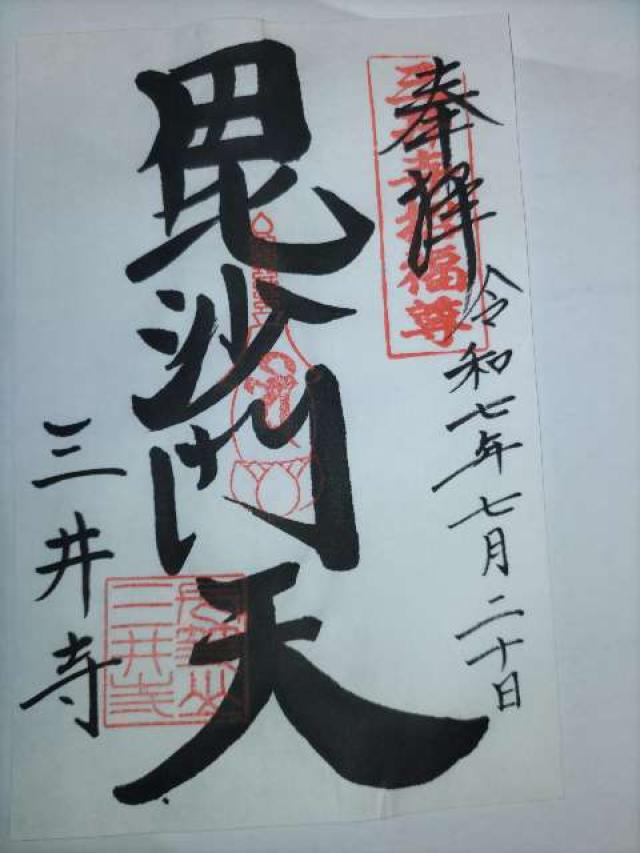 奉拝
令和七年七月二十日
福尊
毘沙門天
三井寺
三井寺